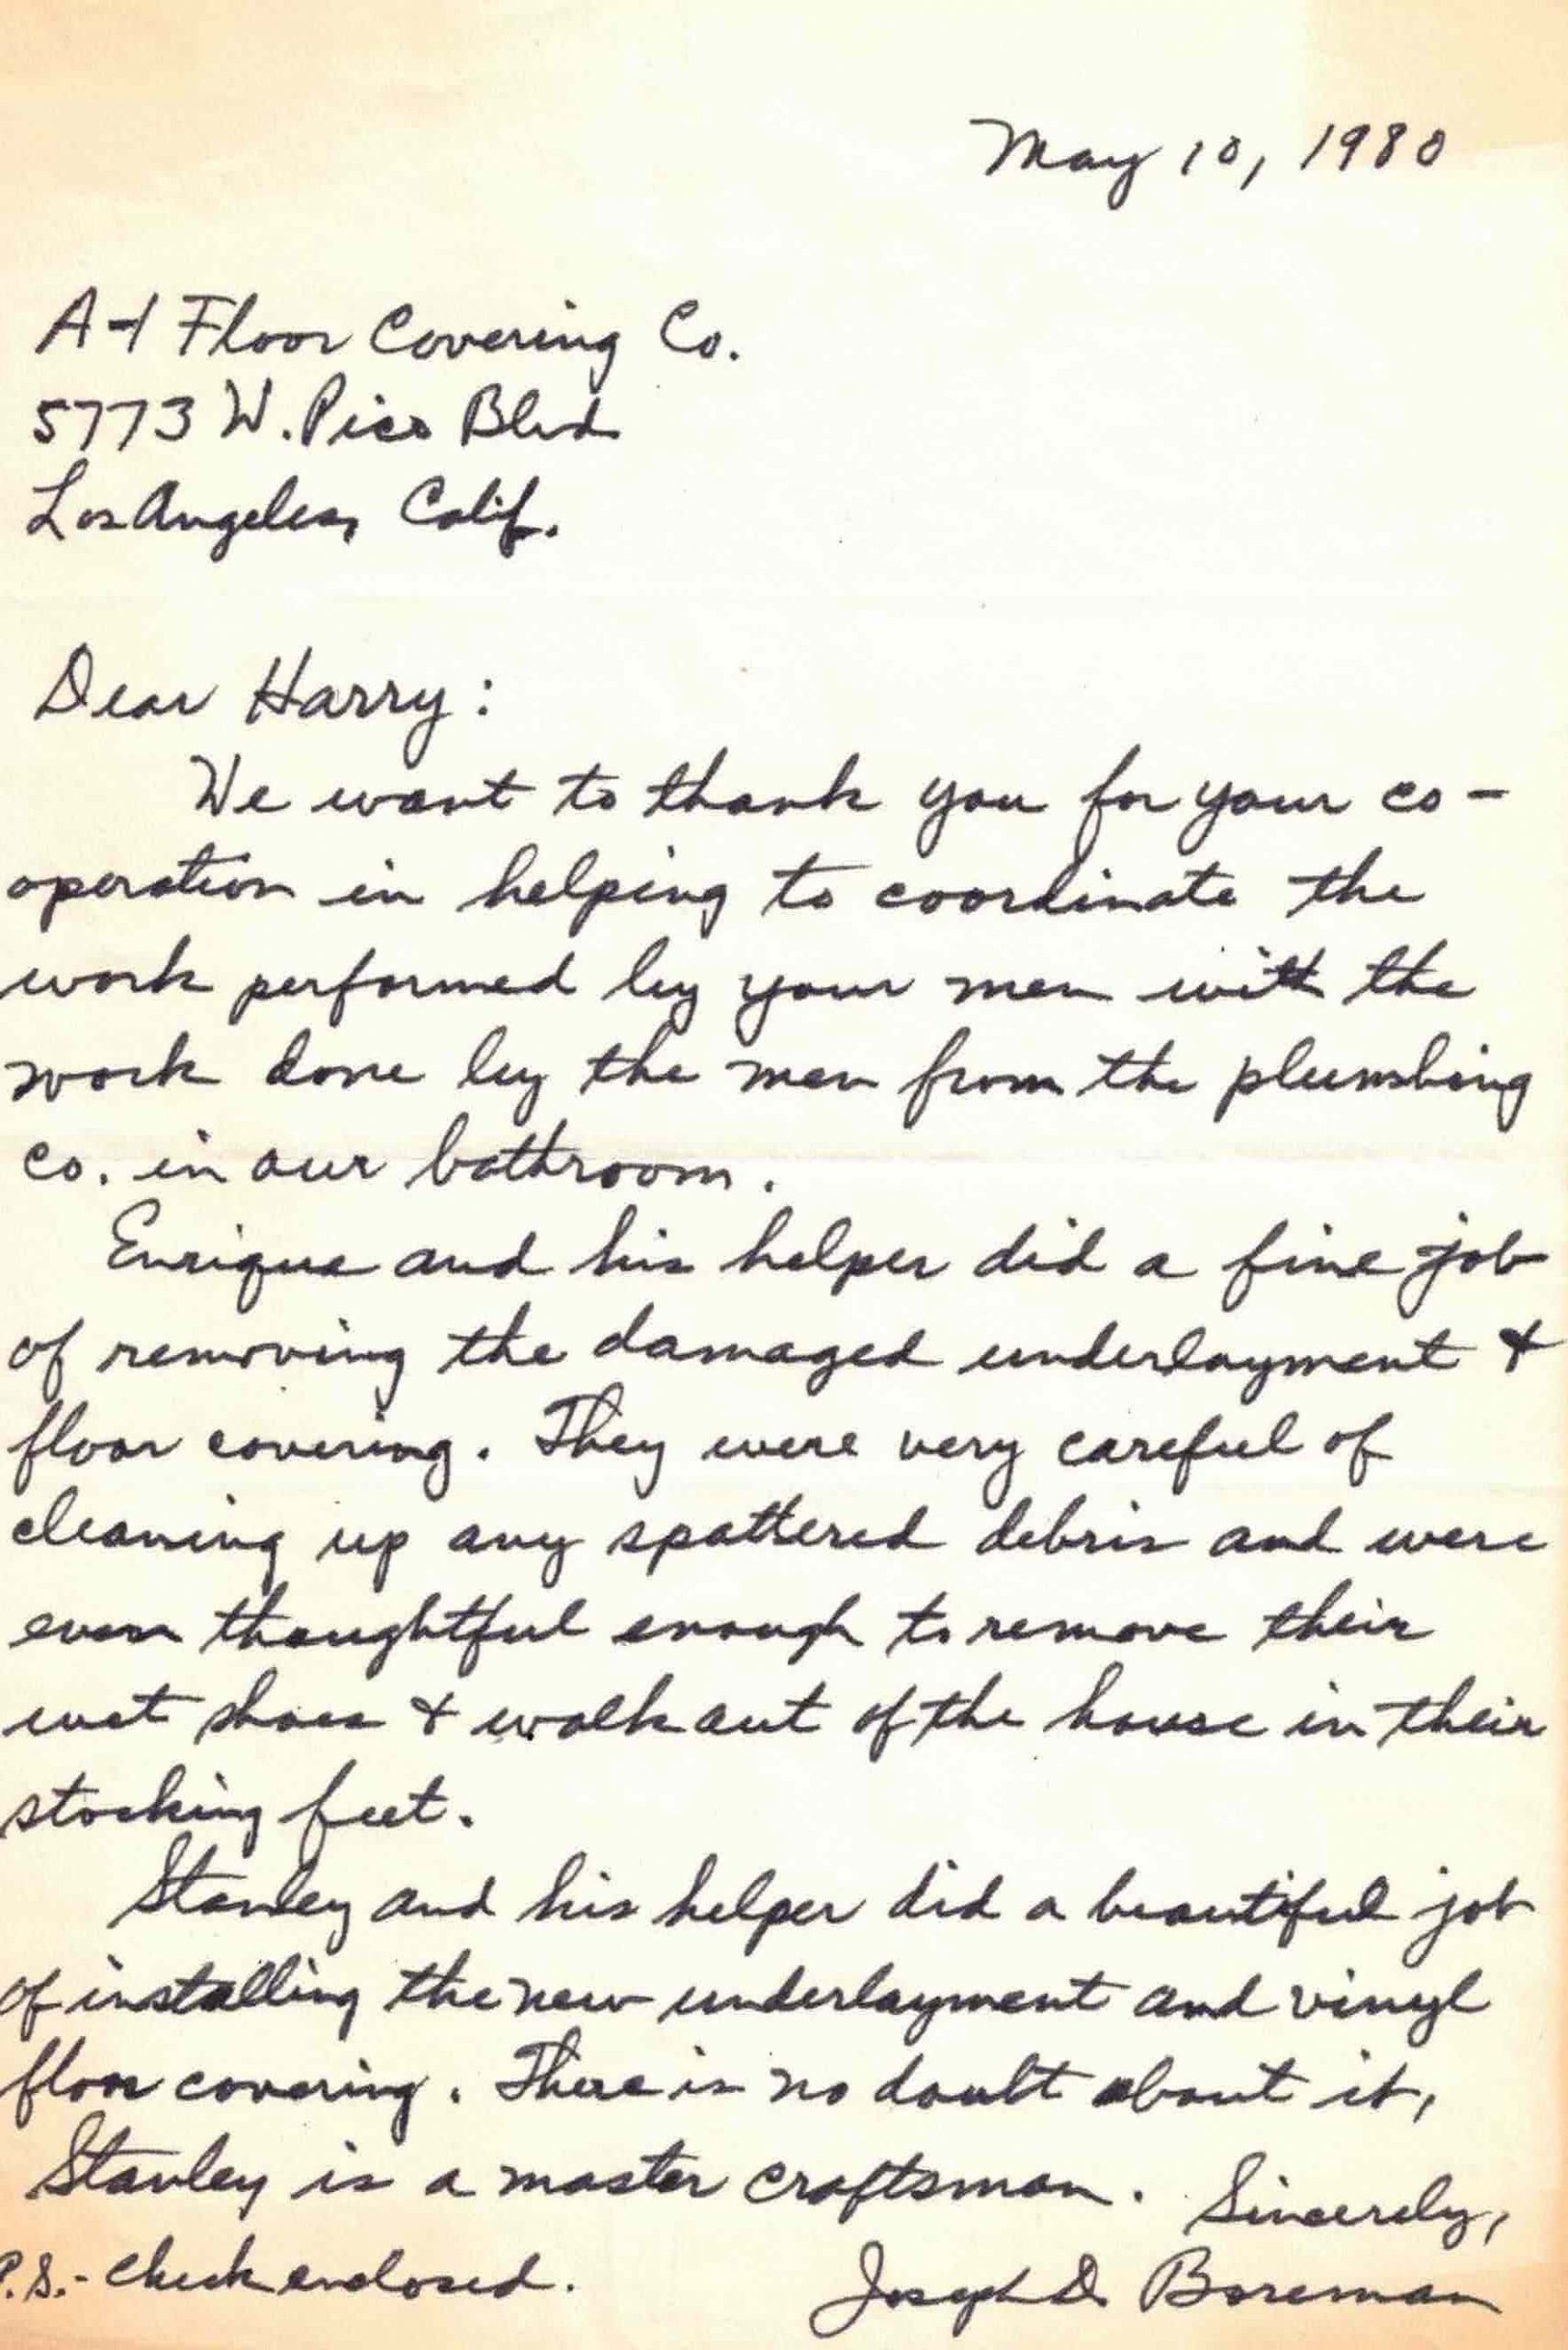 May 10, 1980
A-1 Floor Covering Co.
5773 W. Pico Blvd
Los Angeles, Calif.
Dear Harry:
We want to thank you for your co-
operation in helping to coordinate the
work performed by your men with the
work done by the men from the plumbing
co. in our bathroom.
Enrique and his helper did a fine job
of removing the damaged underlayment &
floor covering. They were very careful of
cleaning up any spattered debris and were
even thoughtful enough to remove their
wet shoes & walk out of the house in their
stocking feet.
Stanley and his helper did a beautiful job
of installing the new underlayment and vinyl
floor covering. There is no doubt about it,
Stanley is a master craftsman. Sincerely,
P.S.- Check enclosed. Joseph D. Boreman